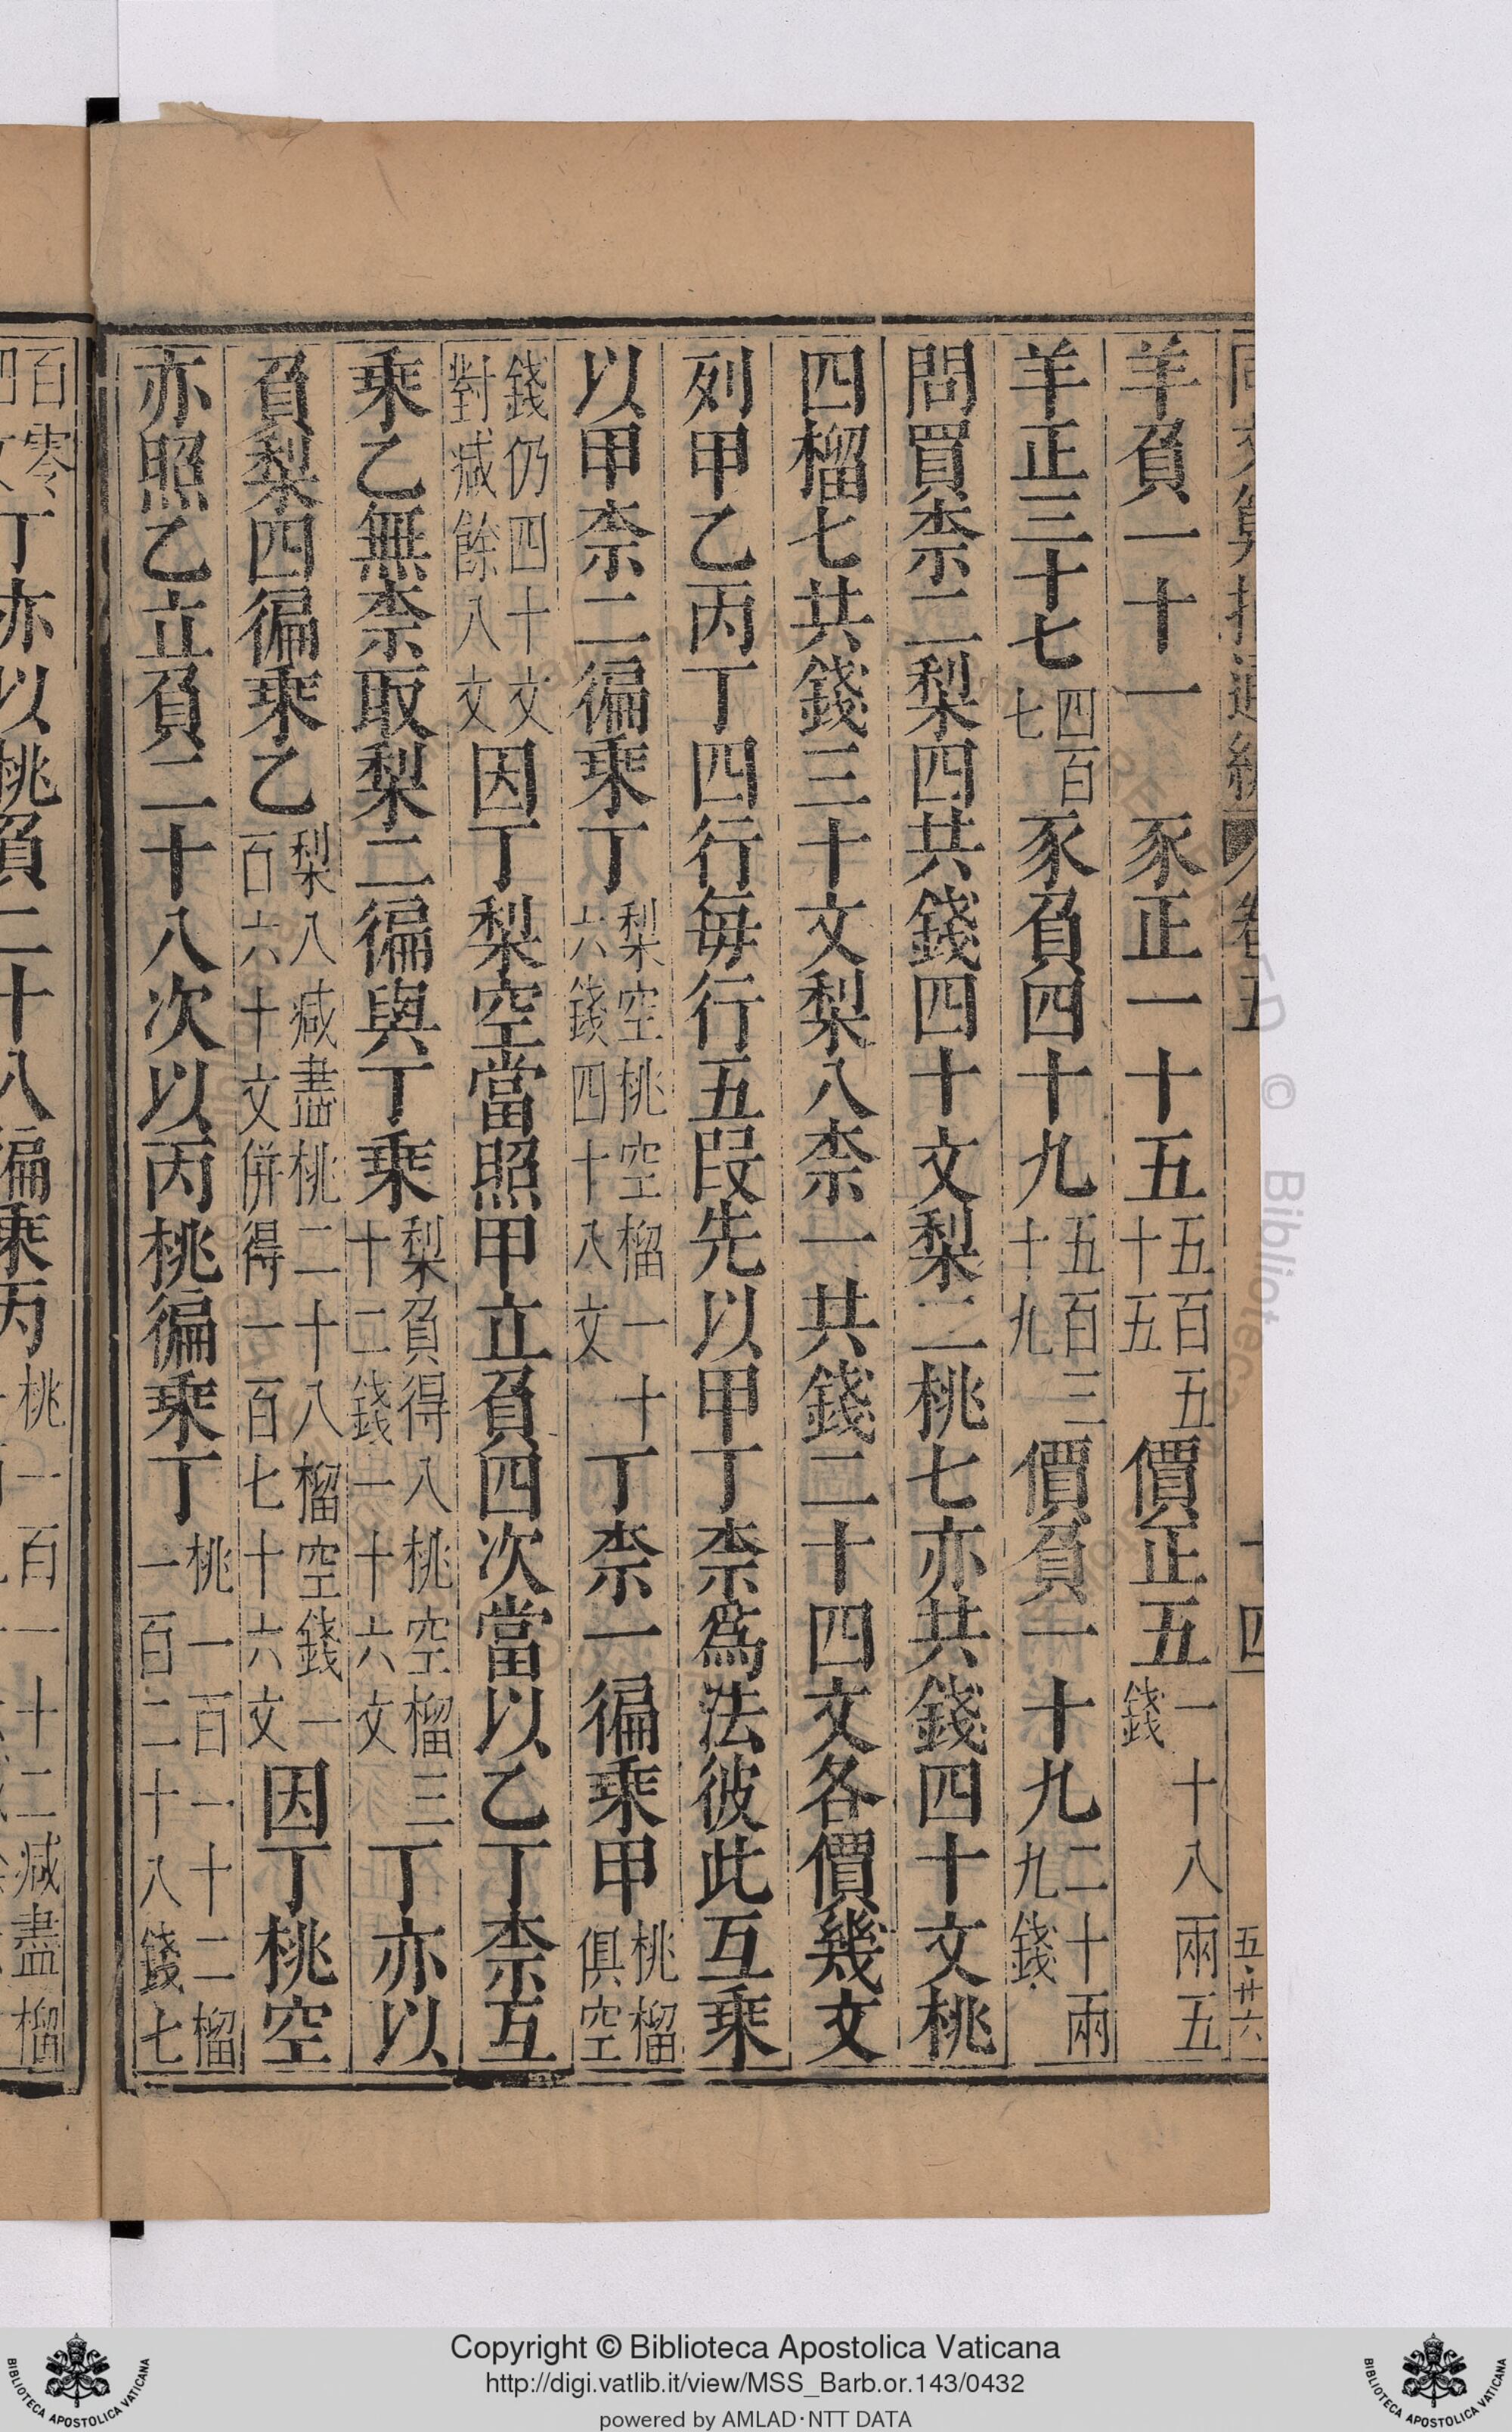 羊負一十一 豕正一十五五百五十五 五價正五一十八兩五錢
羊正三十七四百七豕負四十九五百三十九價負一十九二十兩九錢
問買柰二梨四共錢四十文梨二桃七亦共錢四十文桃
四榴七共錢三十文梨八柰一共錢二十四文各價幾文
列甲乙丙丁四行每行五段先以甲丁柰爲法彼此互乘
以甲柰二徧乘丁梨空桃空榴一十六錢四十八文丁柰一徧乘甲桃榴俱空
錢仍四十文對減餘八文因丁梨空當照甲立負四次當以乙丁柰互
乘乙無柰取梨二徧與丁乘梨負得八桃空榴三十二錢一十六文丁亦以
負梨四徧乘乙梨八減盡桃二十八榴空錢一百六十文併得一百七十六文因丁桃空
亦照乙立負二十八次以丙桃徧乘丁桃一百一十二榴一百二十八錢七
卷五
十四
五·廿六
Copyright © Biblioteca Apostolica Vaticana
http://digi.vatlib.it/view/MSS_Barb.or.143/0432
powered by AMLAD·NTT DATA
BIBLIOTECA APOSTOLICA VATICANA
BIBLIOTECA APOSTOLICA VATICANA